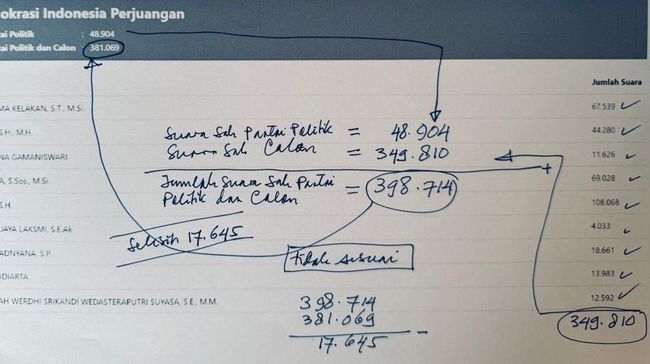 okrasi Indonesia Perjuangan
tai Politik : 48.904
tai Politik dan Calon : 381.069
Jumlah Suara
MA KELAKAN, S.T., M.Si. 67.539
S.H., M.H. 44.280
NA GAMANISWARI 11.626
A, S.Sos., M.Si. 69.028
S.H. 108.068
JAYA LAKSMI, S.E.Ak 4.033
ADNYANA, S.P. 18.661
UDIARTA 13.983
AH WERDHI SRIKANDI WEDASTERAPUTRI SUYASA, S.E., M.M. 12.592
349.810
Suara Sah Partai Politik = 48.904
Suara Sah Calon = 349.810
+
Jumlah Suara Sah Partai
Politik dan Calon = 398.714
Selisih 17.645
tidak sesuai
398.714
381.069
-
17.645